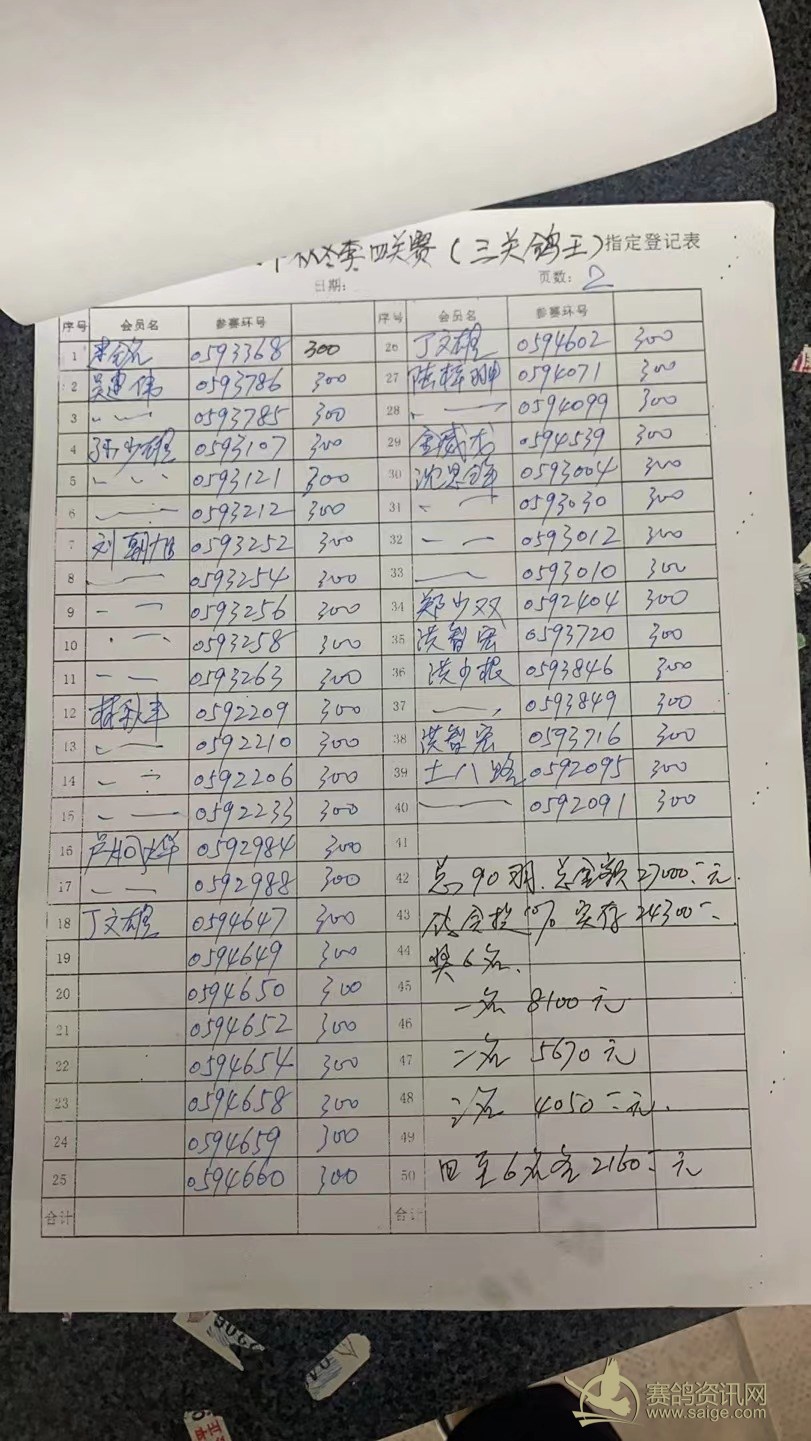 秋冬季四关赛(三关鸽王)指定登记表
日期: 页数: 2
序号 会员名 参赛环号 序号 会员名 参赛环号
1 0593368 300 26 丁文雄 0594602 300
2 吴惠伟 0593786 300 27 陈梓珊 0594071 300
3 〃 〃 0593785 300 28 0594099 300
4 孙少雄 0593107 300 29 0594539 300
5 〃 〃 0593121 300 30 0593004 300
6 0593212 300 31 0593030 300
7 刘朝旭 0593252 300 32 0593012 300
8 0593254 300 33 0593010 300
9 0593256 300 34 郑少双 0592404 300
10 0593258 300 35 洪智宏 0593720 300
11 0593263 300 36 洪少根 0593846 300
12 林秋丰 0592209 300 37 0593849 300
13 0592210 300 38 洪智宏 0593716 300
14 0592206 300 39 土八路 0592095 300
15 0592233 300 40 0592091 300
16 0592984 300 41
17 0592988 300 42 总90羽.总金额27000元.
18 丁文雄 0594647 300 43 协会提10% 实存24300
19 0594649 300 44 奖6名.
20 0594650 300 45 一名 8100元
21 0594652 300 46
22 0594654 300 47 二名 5670元
23 0594658 300 48 三名 4050元.
24 0594659 300 49
25 0594660 300 50 四至6名各2160元
合计 合计
赛鸽资讯网
www.saige.com